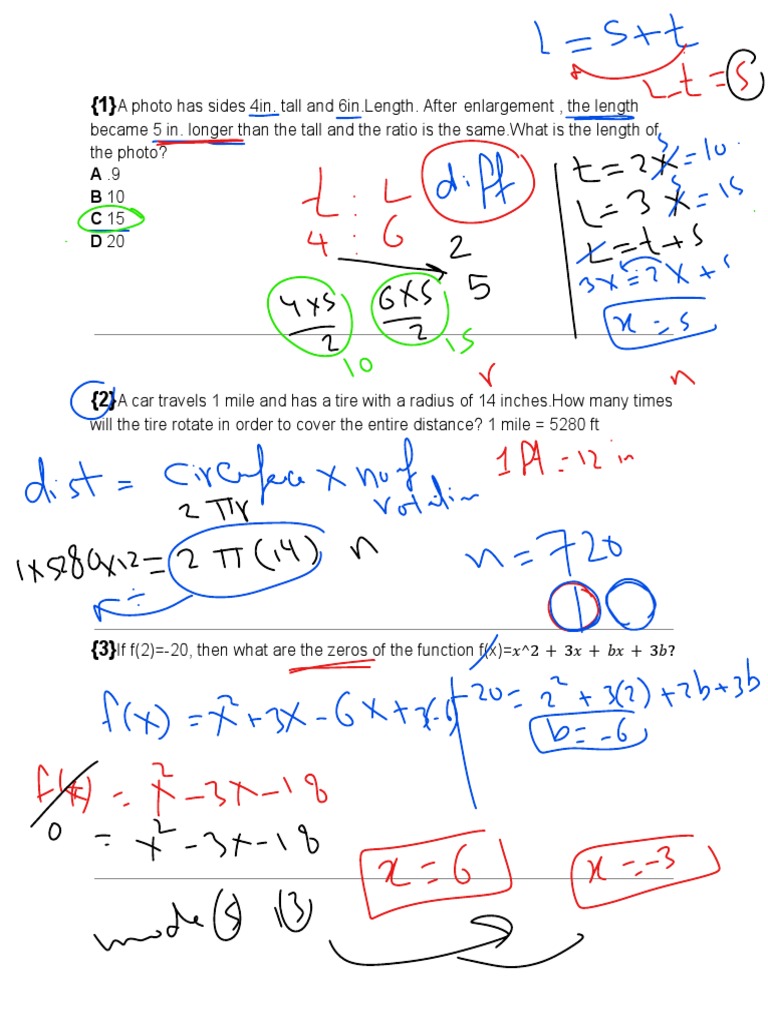 L = S + t
L - t = S
{1}A photo has sides 4in. tall and 6in.Length. After enlargement , the length
became 5 in. longer than the tall and the ratio is the same.What is the length of
the photo?
A .9
B 10
C 15
D 20
t : L diff
4 : 6 2
5
4x5/2 6x5/2
10 15
t = 2x = 10
5
L = 3x = 15
5
L = t + 5
3x = 2x + 5
x = 5
r n
{2}A car travels 1 mile and has a tire with a radius of 14 inches.How many times
will the tire rotate in order to cover the entire distance? 1 mile = 5280 ft
1 ft = 12 in
dist = x no of
2πr
1x5280x12 = 2π(14) n
÷
n = 720
{3}If f(2)=-20, then what are the zeros of the function f(x)=x^2 + 3x + bx + 3b?
f(x) = x² + 3x - 6x + 3(-6)
-20 = 2² + 3(2) + 2b + 3b
b = -6
f(x) = x² - 3x - 18
0 = x² - 3x - 18
x = 6 x = -3
mode (5) (3)